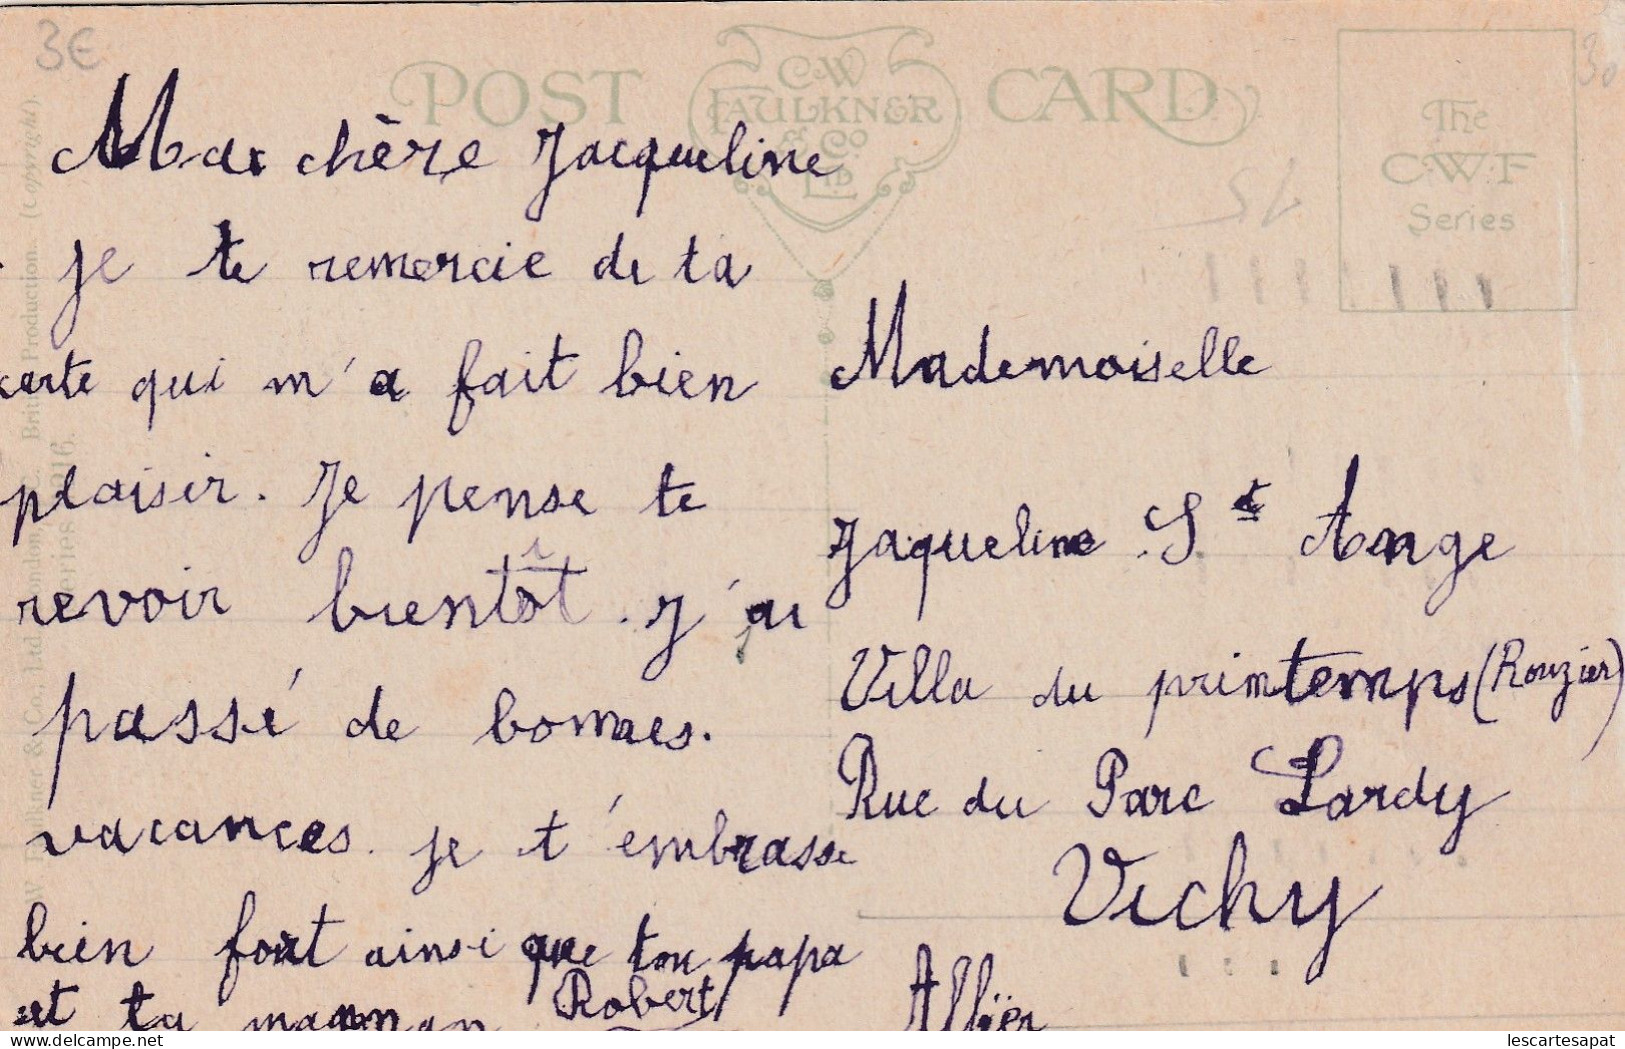 3€
POST CARD
C.W.
FAULKNER
& Co
LTD
The
C.W.F
Series
30
Ma chère Jacqueline
je te remercie de ta
carte qui m'a fait bien
plaisir. Je pense te
revoir bientôt. J'ai
passé de bonnes.
vacances. je t'embrasse
bien fort ainsi que ton papa
et ta maman Robert
Mademoiselle
Jaqueline St Ange
Villa du printemps (Rouzier)
Rue du Parc Lardy
Vichy
Allier
(Copyright).
British Production.
www.delcampe.net
lescartesapat